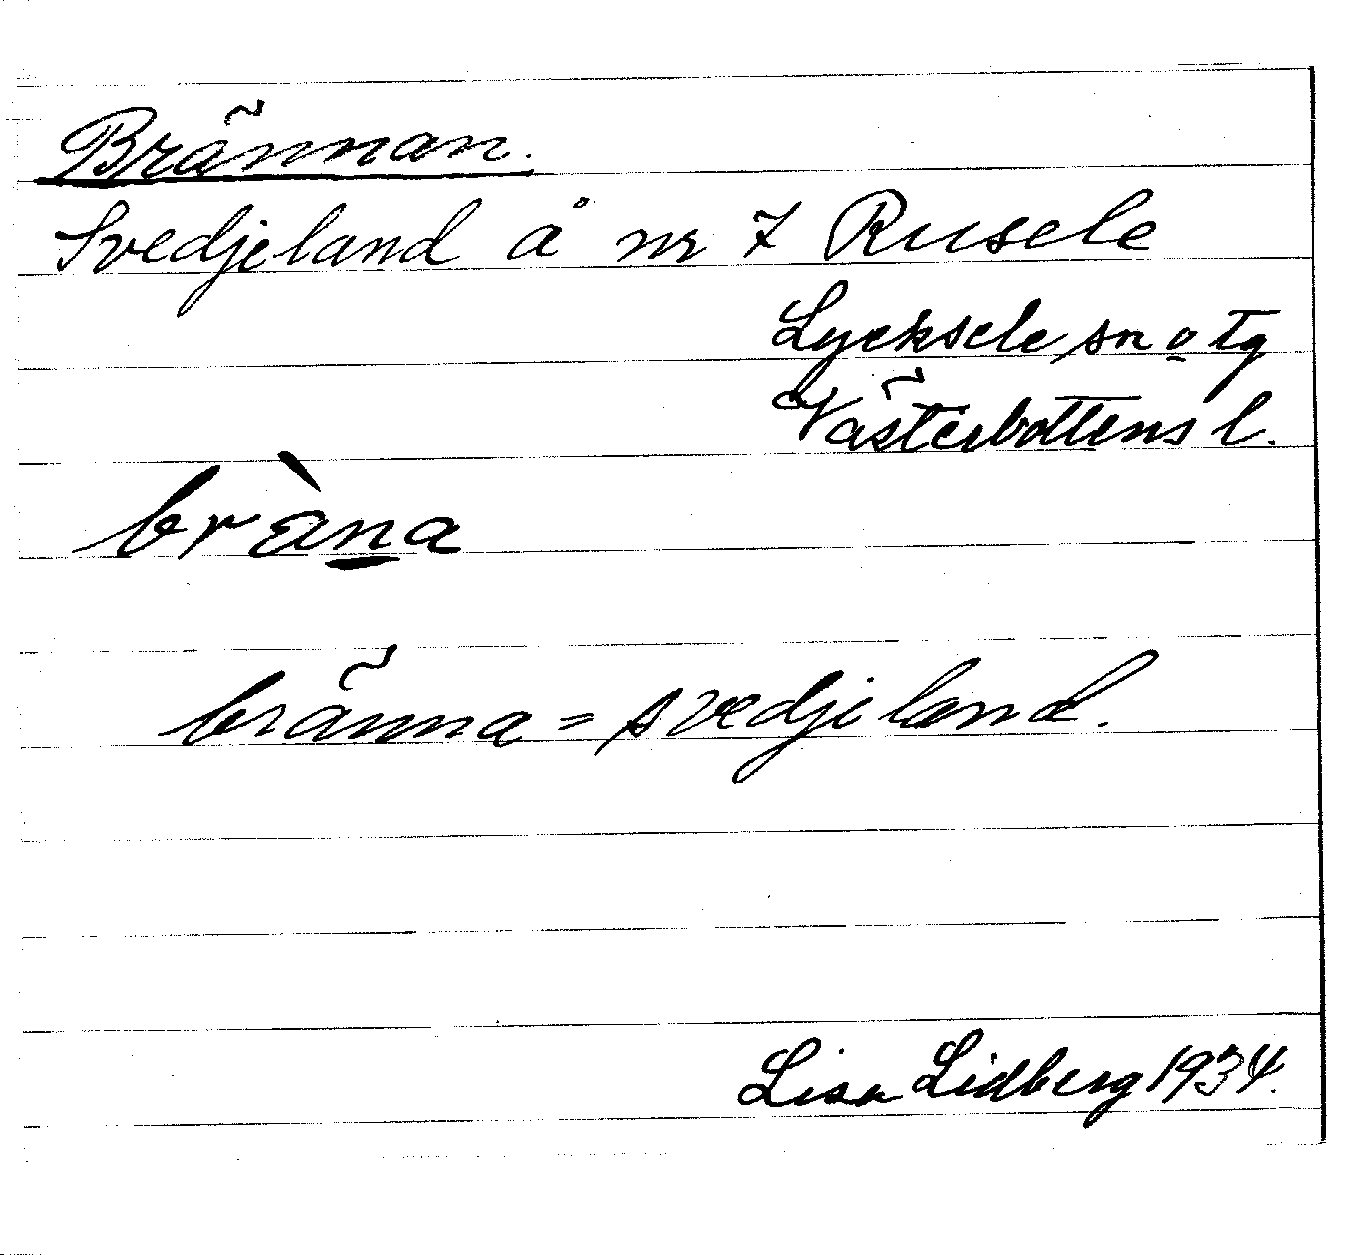 Brännan.
Svedjeland å nr 7 Rusele
Lycksele sn o tg
Västerbottens l.
bràn̲a
bränna = svedjeland.
Lisa Lidberg 1934.